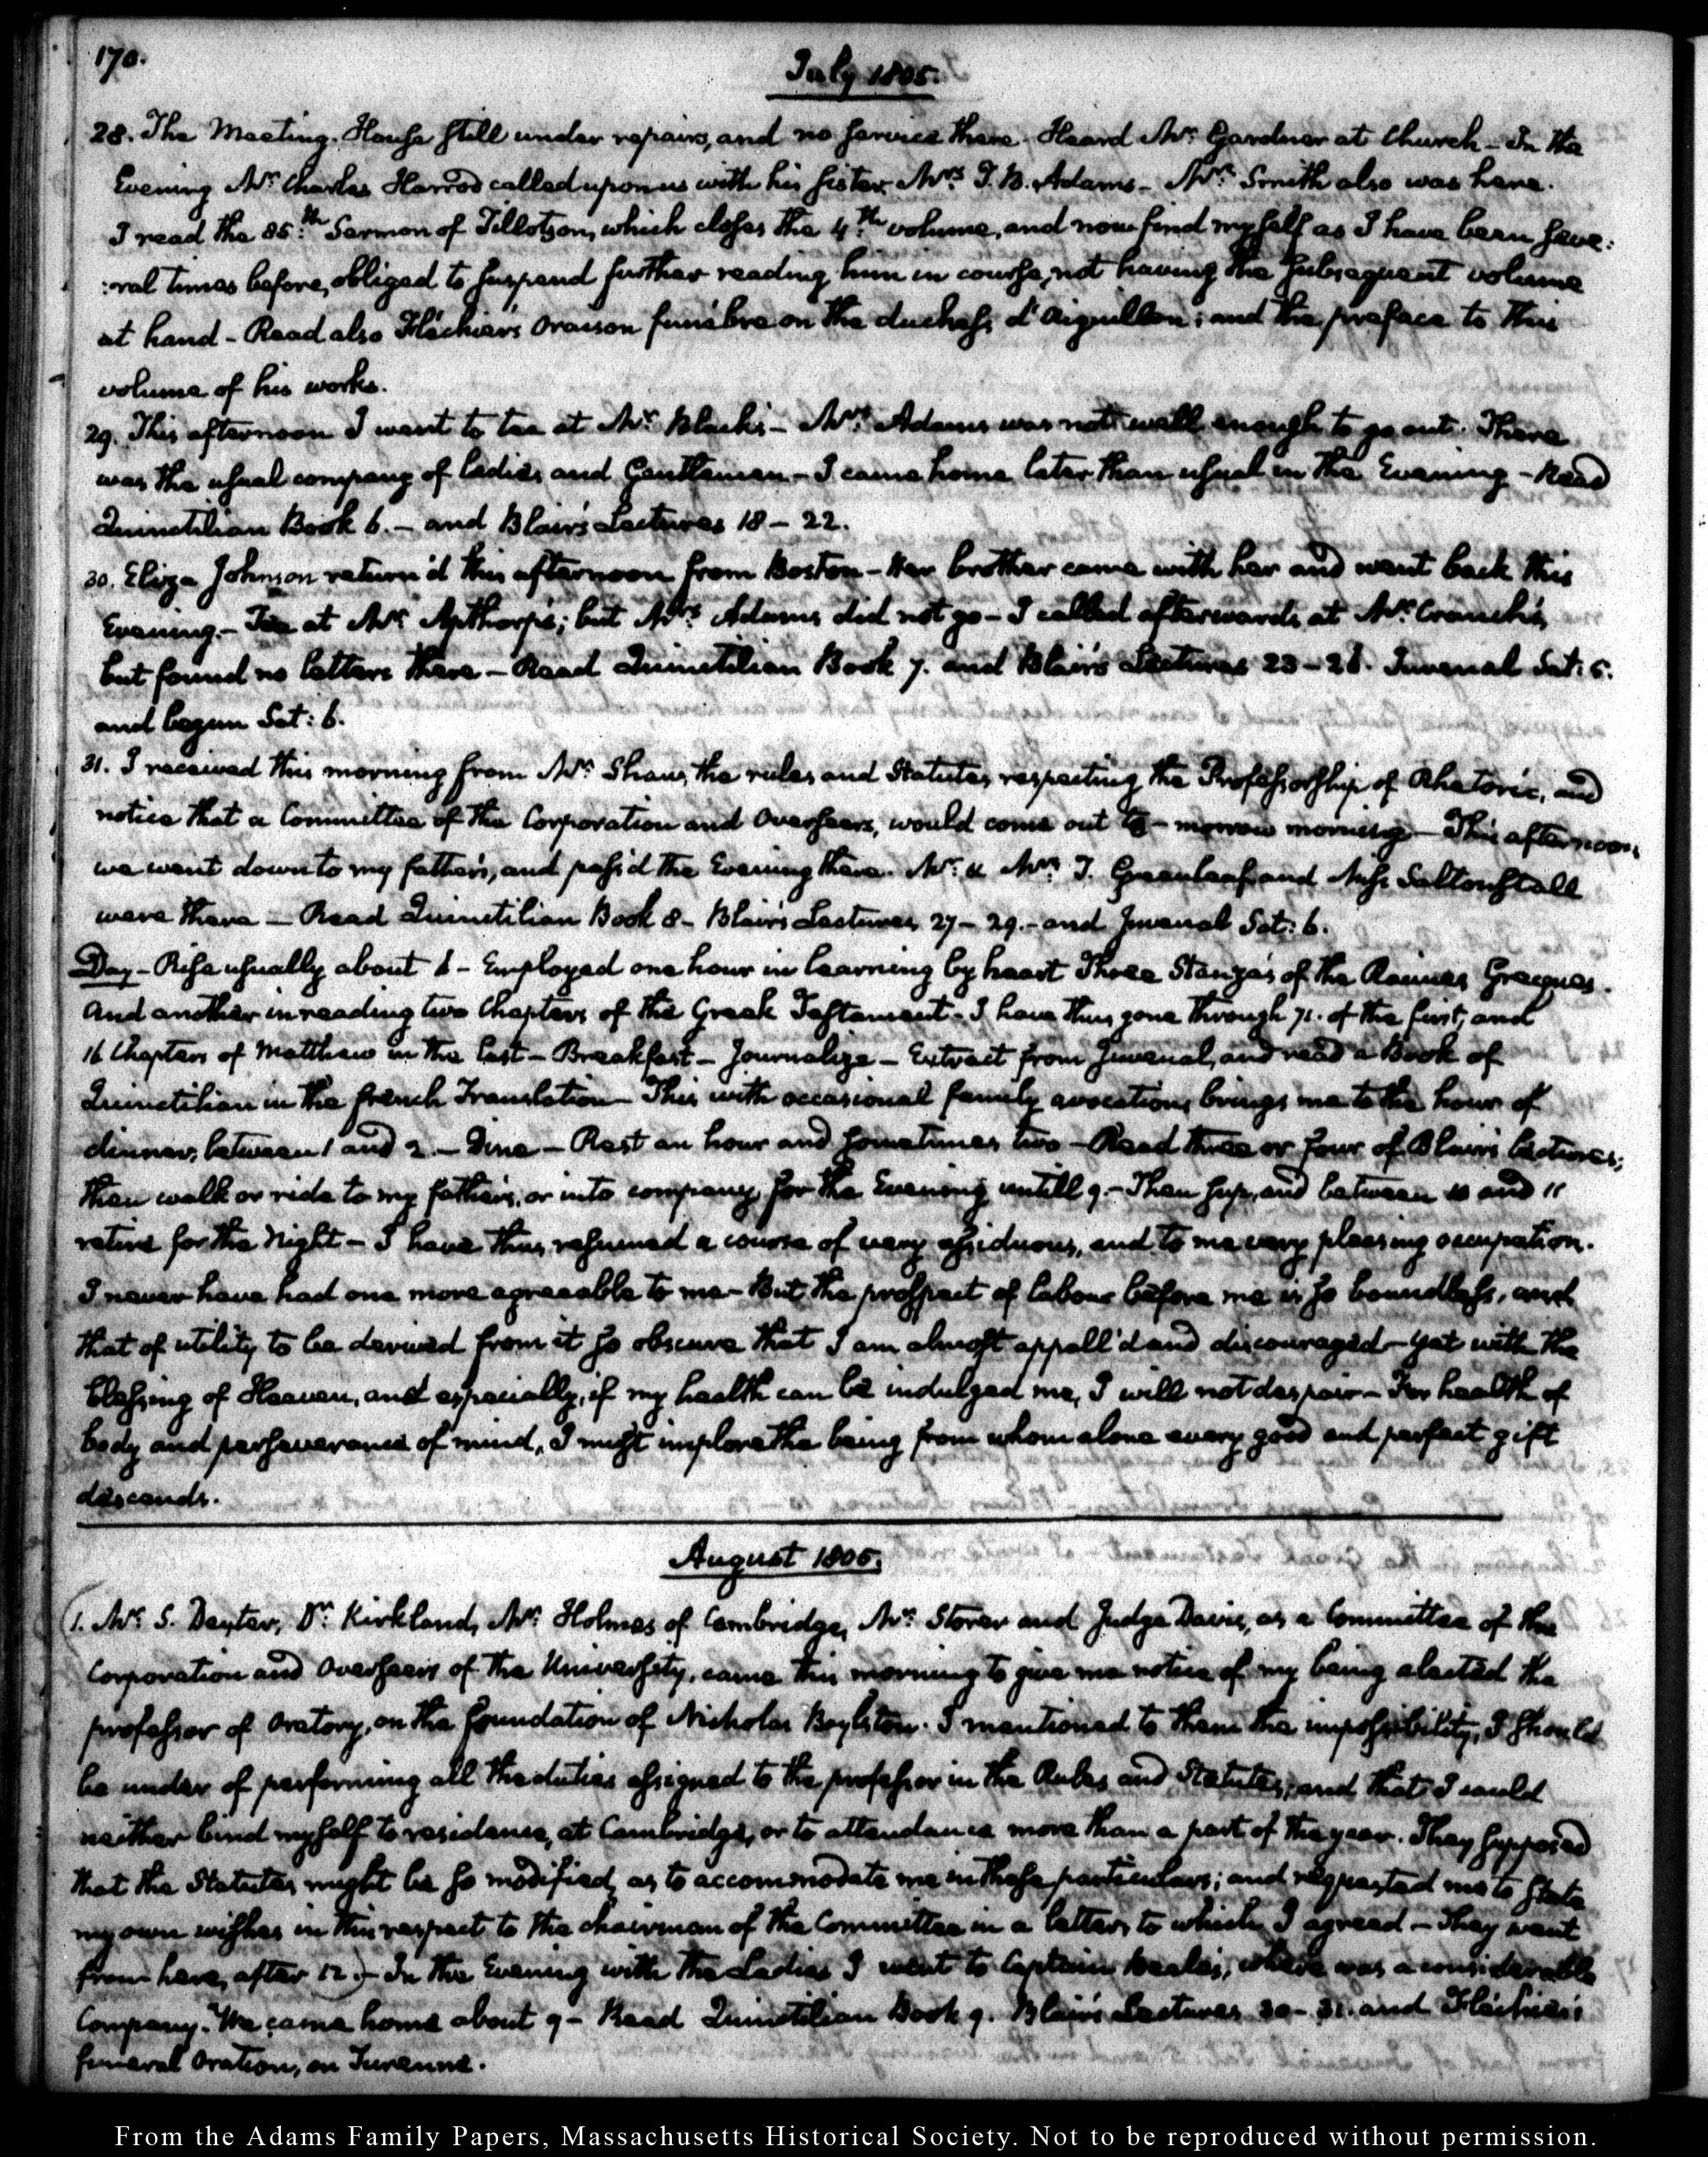 170.
July 1805.
28. The Meeting-House still under repairs, and no service there. Heard Mr. Gardner at Church – In the
Evening Mr. Charles Harrod called upon us with his sister, Mrs. T. B. Adams – Mr. Smith also was here.
I read the 85.th Sermon of Tillotson, which closes the 4.th volume, and now find myself as I have been seve:
:ral times before, obliged to suspend further reading him in course, not having the subsequent volume
at hand – Read also Fléchier's Oraison funèbre on the duchess d'Aiguillon; and the preface to this
volume of his works.
29. This afternoon I went to tea at Mr. Black's – Mrs. Adams was not well enough to go out. There
was the usual company of ladies and Gentlemen – I came home later than usual in the Evening – Read
Quinctilian Book 6. – and Blair's Lectures 18 – 22.
30. Eliza Johnson return'd this afternoon from Boston – Her brother came with her and went back this
Evening. – Tea at Mr. Apthorp's; but Mrs. Adams did not go – I called afterwards at Mr. Cranch's,
but found no letters there – Read Quinctilian Book 7. and Blair's Lectures 23 – 26. Juvenal Sat: 5.
and began Sat: 6.
31. I received this morning from Mr. Shaw, the rules and Statutes, respecting the Professorship of Rhetoric, and
notice that a Committee of the Corporation and Overseers, would come out to-morrow morning – This afternoon
we went down to my father's, and pass'd the Evening there. Mr. & Mrs. T. Greenleaf and Miss Saltonstall
were there – Read Quinctilian Book 8 – Blair's Lectures, 27 – 29. – and Juvenal Sat: 6.
Day – Rise usually about 6 – Employed one hour in learning by heart Three Stanzas of the Racines Grecques.
And another in reading two Chapters of the Greek Testament – I have thus gone through 71. of the first, and
16 Chapters of Matthew in the last – Breakfast – Journalize – Extract from Juvenal, and read a Book of
Quinctilian in the french Translation – This with occasional family avocations, brings me to the hour of
dinner, between 1 and 2. – Dine – Rest an hour and sometimes two – Read three or four of Blair's lectures;
then walk or ride to my father's, or into company for the Evening untill 9. – Then sup, and between 10 and 11
retire for the Night – I have thus resumed a course of very assiduous, and to me very pleasing occupation.
I never have had one more agreeable to me – But the prospect of labour before me is so boundless, and
that of utility to be derived from it so obscure that I am almost appall'd and discouraged – Yet with the
blessing of Heaven, and especially, if my health can be indulged me, I will not despair – For health of
body and perseverance of mind, I must implore the being from whom alone every good and perfect gift
descends.
August 1805.
1. Mr. S. Dexter, Dr. Kirkland, Mr. Holmes of Cambridge, Mr. Storer and Judge Davis, as a Committee of the
Corporation and Overseers of the University, came this morning to give me notice of my being elected the
professor of Oratory, on the foundation of Nicholas Boylston. I mentioned to them the impossibility, I should
be under of performing all the duties assigned to the professor in the Rules and Statutes; and that I could
neither bind myself to residence, at Cambridge, or to attendance more than a part of the year. They supposed
that the Statutes, might be so modified, as to accommodate me in these particulars; and requested me to state
my own wishes in this respect to the chairman of the Committee in a letter, to which I agreed – They went
from here, after 12.) – In the Evening with the Ladies I went to Captain Beale's, where was a considerable
Company. We came home about 9 – Read Quinctilian Book 9. Blair's Lectures 30 – 31. and Fléchier's
funeral Oration, on Turenne.
From the Adams Family Papers, Massachusetts Historical Society. Not to be reproduced without permission.